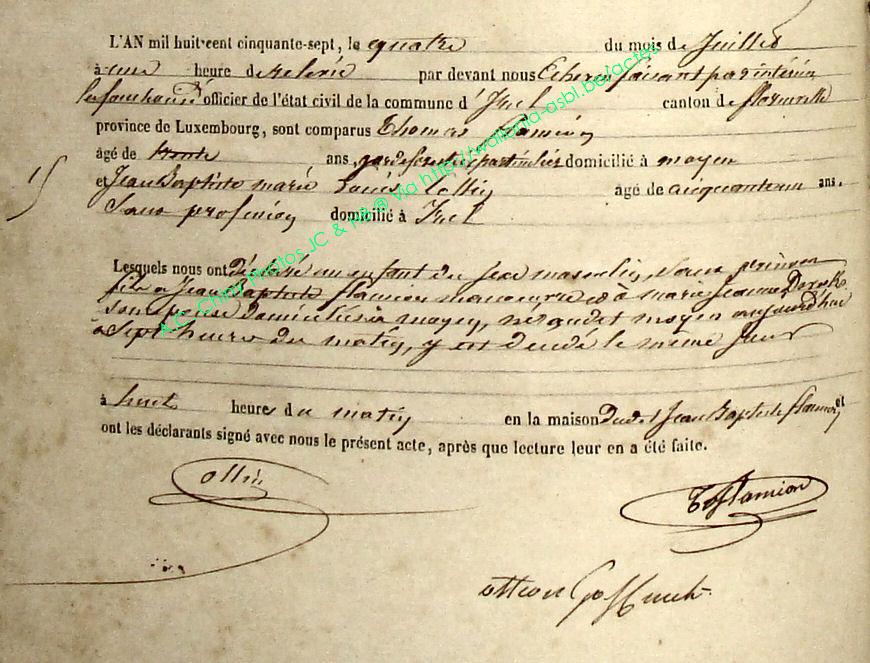 L'AN mil huit cent cinquante-sept, le quatre du mois de Juillet
à une heure de relevée par devant nous Echevin faisant par intérim
les fonctions d'officier de l'état civil de la commune d'Izel canton de florenville
province de Luxembourg, sont comparus Thomas flamion
âgé de trente ans, garde forestier particulier domicilié à moyen
et Jean Baptiste marie Louis Collin âgé de cinquante un ans.
Sans profession domicilié à Izel
Lesquels nous ont déclaré un enfant du sexe masculin, sans prénom
fils de Jean Baptiste flamion manoeuvre et à marie Jeanne
son épouse domiciliés à moyen, né audit moyen aujourd'hui
à Sept heures du matin, y est décédé le même jour
à huit heures du matin en la maison dudit Jean Baptiste flamion, et
ont les déclarants signé avec nous le présent acte, après que lecture leur en a été faite.
ollin
T flamion
A.C. Chiny Photos JC & MR @ Via http://wallonia-asbl.be/actes